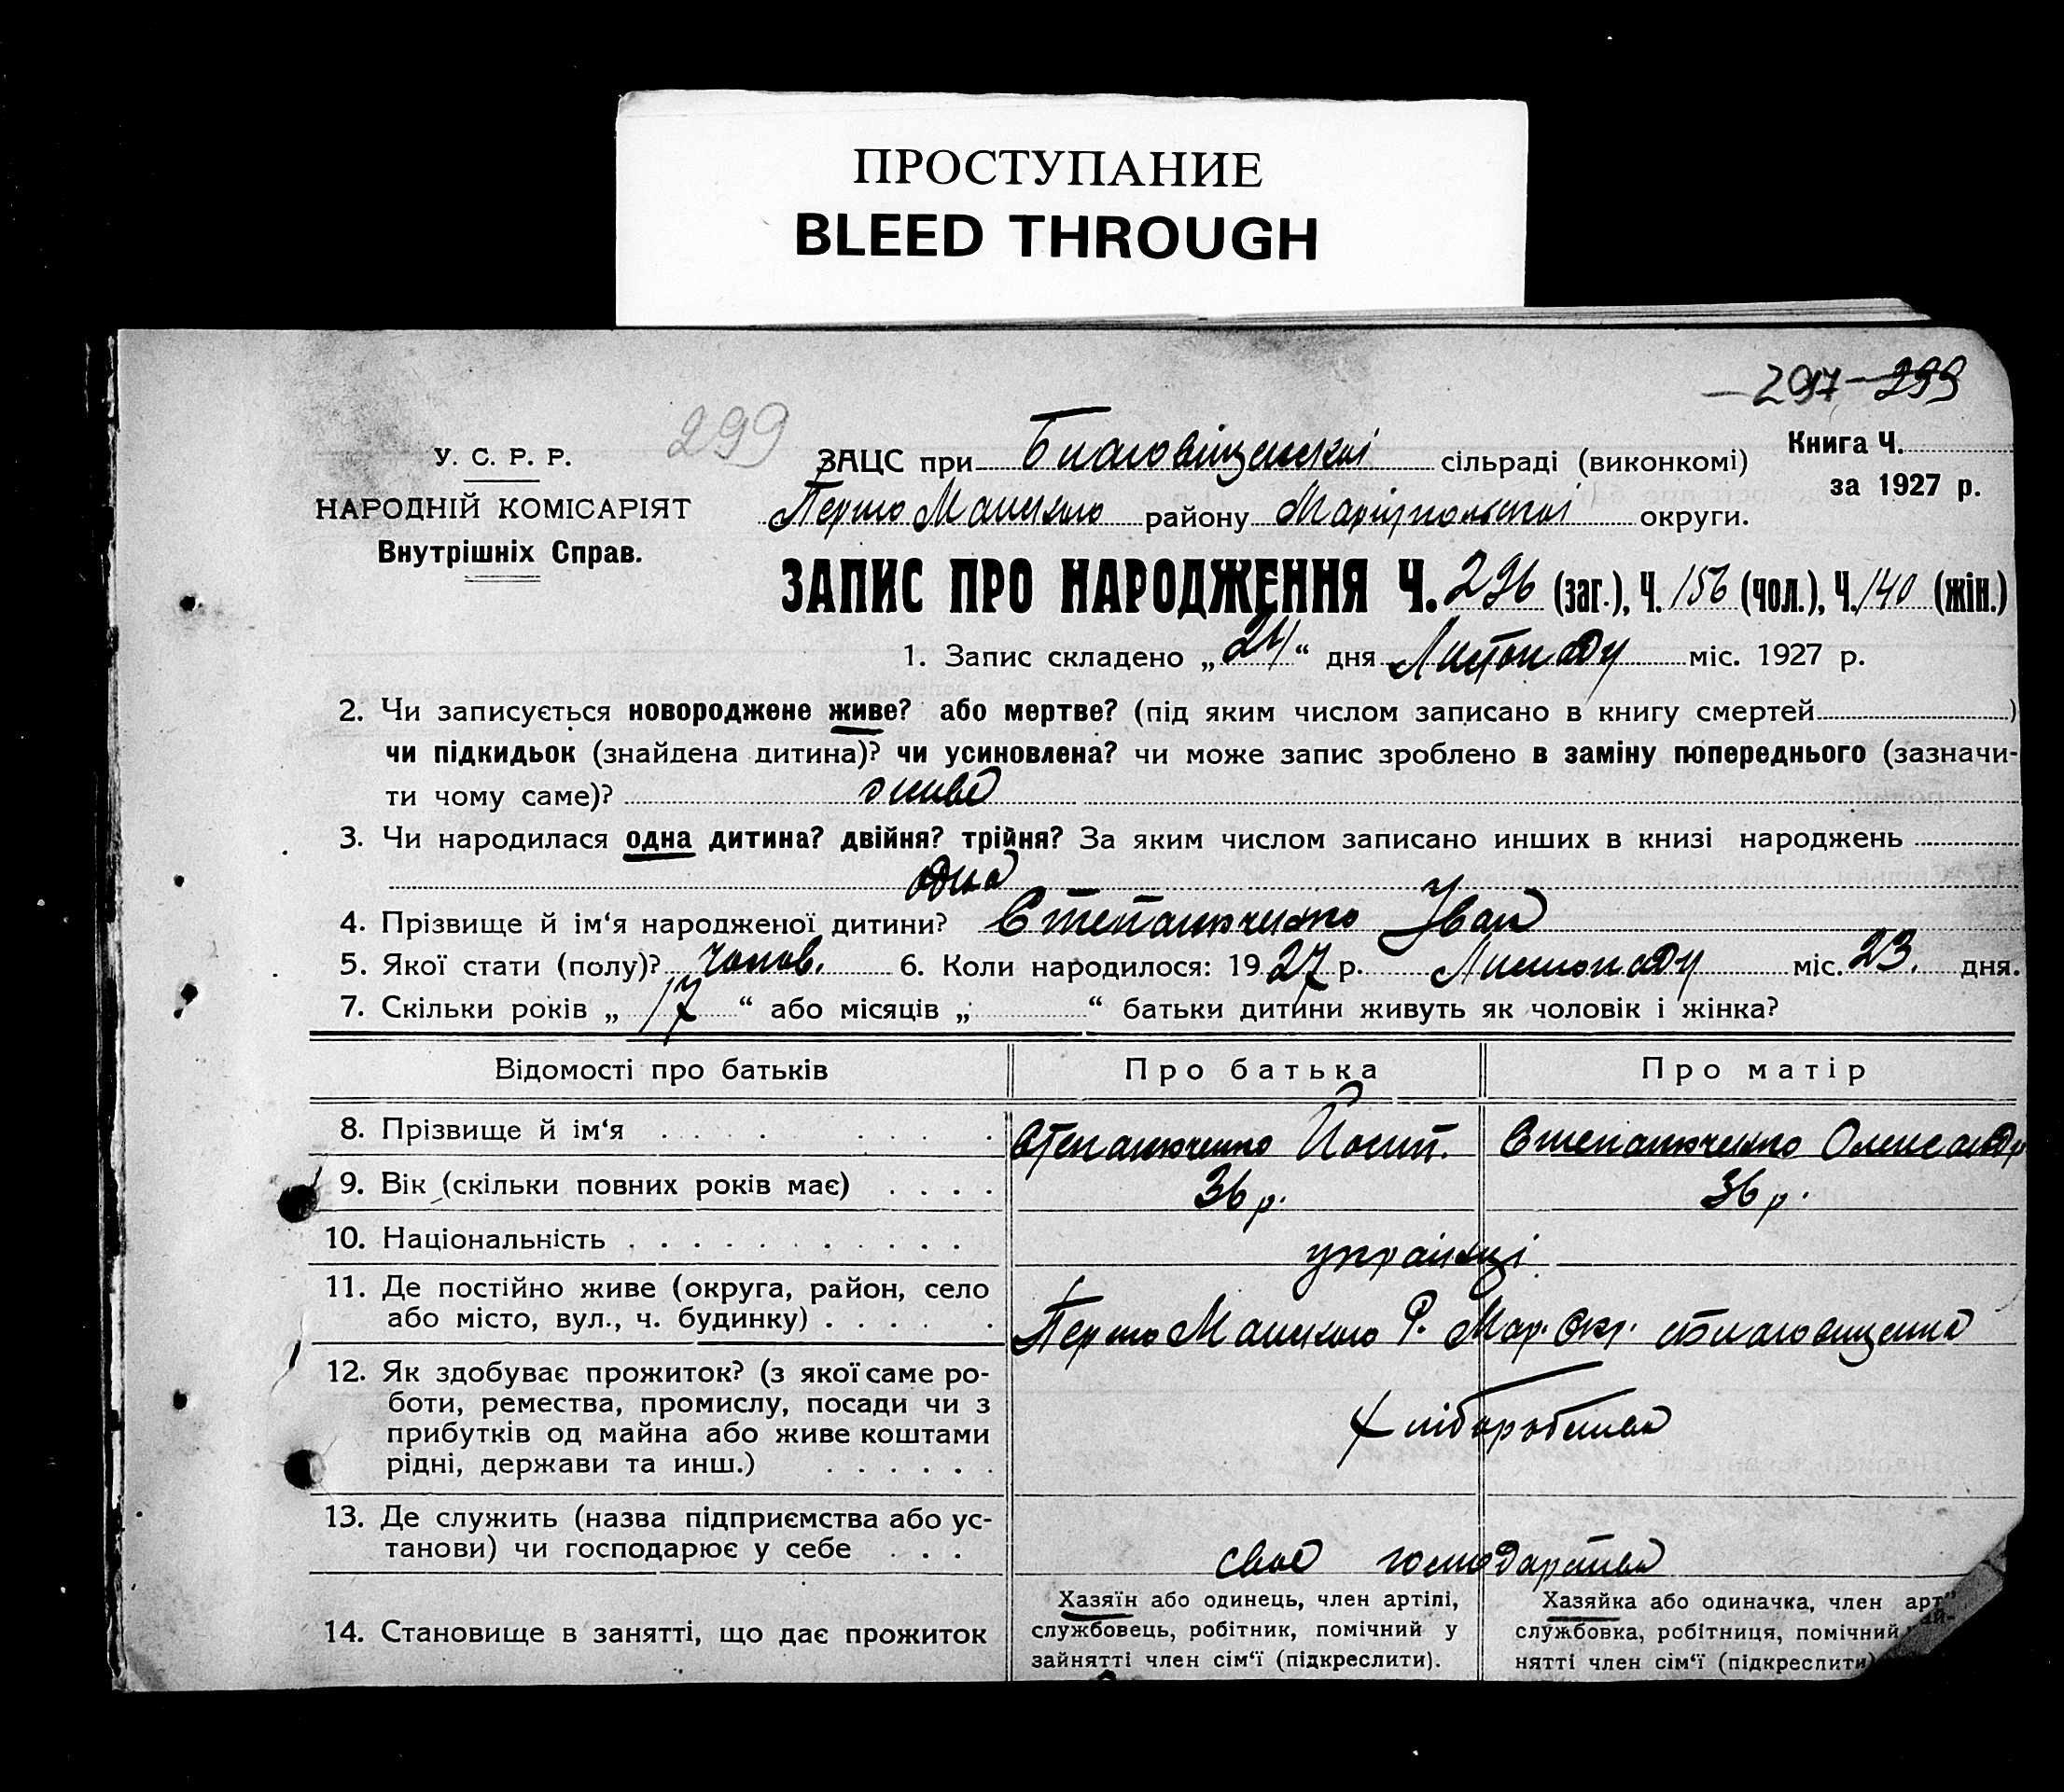 ПРОСТУПАНИЕ
BLEED THROUGH
299
У. С. Р. Р.
НАРОДНІЙ КОМІСАРІЯТ
Внутрішніх Справ.
ЗАЦС при Благовіщенскі сільраді (виконкомі)
Книга Ч.
за 1927 р.
району Маріупольскі округи.
ЗАПИС ПРО НАРОДЖЕННЯ Ч. 296 (заг.), Ч. 156 (чол.), Ч. 140 (жін.)
1. Запис складено „ 24 “ дня Листопаду міс. 1927 р.
2. Чи записується новороджене живе? або мертве? (під яким числом записано в книгу смертей )
чи підкидьок (знайдена дитина)? чи усиновлена? чи може запис зроблено в заміну попереднього (зазначи-
ти чому саме)? живе
3. Чи народилася одна дитина? двійня? трійня? За яким числом записано инших в книзі народжень
одна
4. Прізвище й ім‘я народженої дитини? Степанюченко Іван
5. Якої стати (полу)? чолов. 6. Коли народилося: 1927 р. Листопаду міс. 23. дня.
7. Скільки років „ 17 “ або місяців „ “ батьки дитини живуть як чоловік і жінка?
Відомості про батьків Про батька Про матір
8. Прізвище й ім‘я Степанюченко Йосип. Степанюченко Олександр
9. Вік (скільки повних років має) 36 р. 36 р.
10. Національність українці
11. Де постійно живе (округа, район, село
або місто, вул., ч. будинку) Р. Мар. Окр. Благовищенка
12. Як здобуває прожиток? (з якої саме ро-
боти, ремества, промислу, посади чи з
прибутків од майна або живе коштами
рідні, держави та инш.)
Хліборобство
13. Де служить (назва підприємства або ус-
танови) чи господарює у себе
своє господарство
14. Становище в занятті, що дає прожиток
Хазяїн або одинець, член артілі,
службовець, робітник, помічний у
зайнятті член сім‘ї (підкреслити).
Хазяйка або одиначка, член арт
службовка, робітниця, помічний
нятті член сім‘ї (підкреслити)